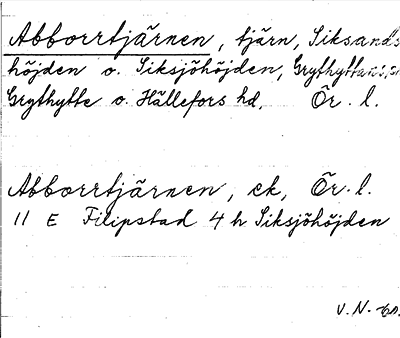 Abborrtjärnen, tjärn, Siksands
höjden o. Siksjöhöjden, Grythyttans
Grythytte o. Hällefors hd, Ör. l.
Abborrtjärnen, ek, Ör. l.
11 E Filipstad 4 h Siksjöhöjden
V. N.